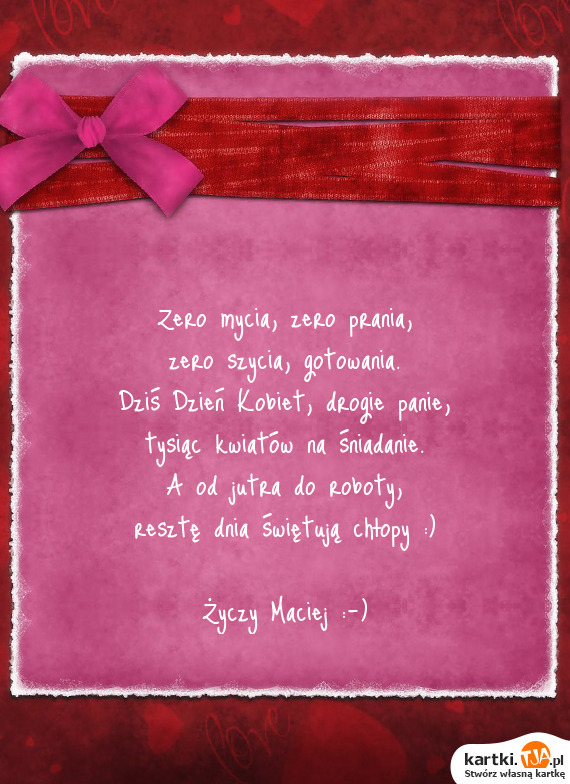 love
love
Zero mycia, zero prania,
zero szycia, gotowania.
Dziś Dzień Kobiet, drogie panie,
tysiąc kwiatów na śniadanie.
A od jutra do roboty,
resztę dnia świętują chłopy :)
Życzy Maciej :-)
love
kartki.TJA.pl
Stwórz własną kartkę